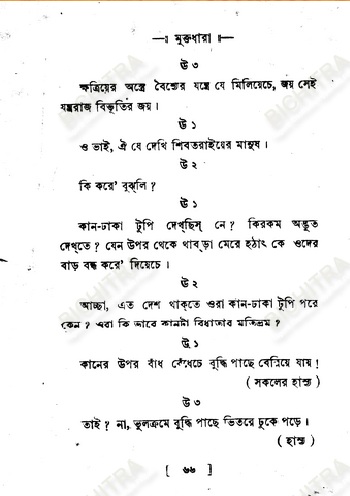 —॥ মুক্তধারা ॥—
উ ৩
ক্ষত্রিয়ের অস্ত্রে বৈশ্যের যন্ত্রে যে মিলিয়েচে, জয় সেই
যন্ত্ররাজ বিভূতির জয়।
উ ১
ও ভাই, ঐ যে দেখি শিবতরাইয়ের মানুষ।
উ ২
কি করে' বুঝ্‌লি?
উ ১
কান-ঢাকা টুপি দেখ্‌ছিস্ নে? কিরকম অদ্ভুত
দেখ্‌তে? যেন উপর থেকে থাব্‌ড়া মেরে হঠাৎ কে ওদের
বাড় বন্ধ করে' দিয়েচে।
উ ২
আচ্ছা, এত দেশ থাক্‌তে ওরা কান-ঢাকা টুপি পরে
কেন? ওরা কি ভাবে কানটা বিধাতার মতিভ্রম?
উ ১
কানের উপর বাঁধ বেঁধেচে বুদ্ধি পাছে বেরিয়ে যায়!
( সকলের হাস্য )
উ ৩
তাই? না, ভুলক্রমে বুদ্ধি পাছে ভিতরে ঢুকে পড়ে।
( হাস্য )
[ ৬৬ ]
BICHITRA